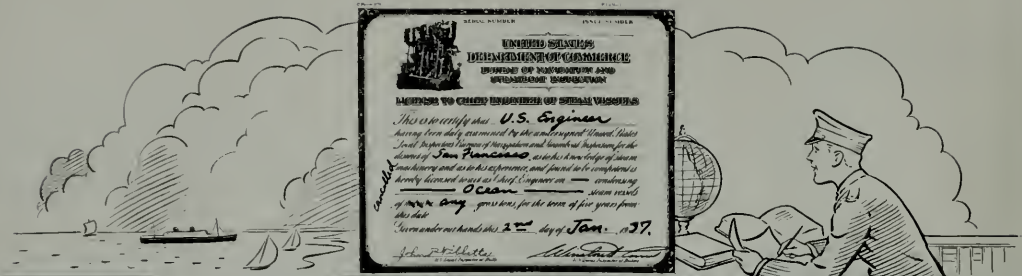 SERIAL NUMBER ISSUE NUMBER
UNITED STATES
DEPARTMENT OF COMMERCE
BUREAU OF NAVIGATION AND
STEAMBOAT INSPECTION
LICENSE TO CHIEF ENGINEER OF STEAM VESSELS
This is to certify that U.S. Engineer
having been duly examined by the undersigned United States
Joint Inspectors Bureau of Navigation and Steamboat Inspection, for the
district of San Francisco, as to his knowledge of steam
machinery and as to his experience, and found to be competent is
hereby licensed to act as Chief Engineer on — condensing
Ocean steam vessels
of any gross tons, for the term of five years from
this date
Given under our hands this 2nd day of Jan. 1937.
cancelled
John P.